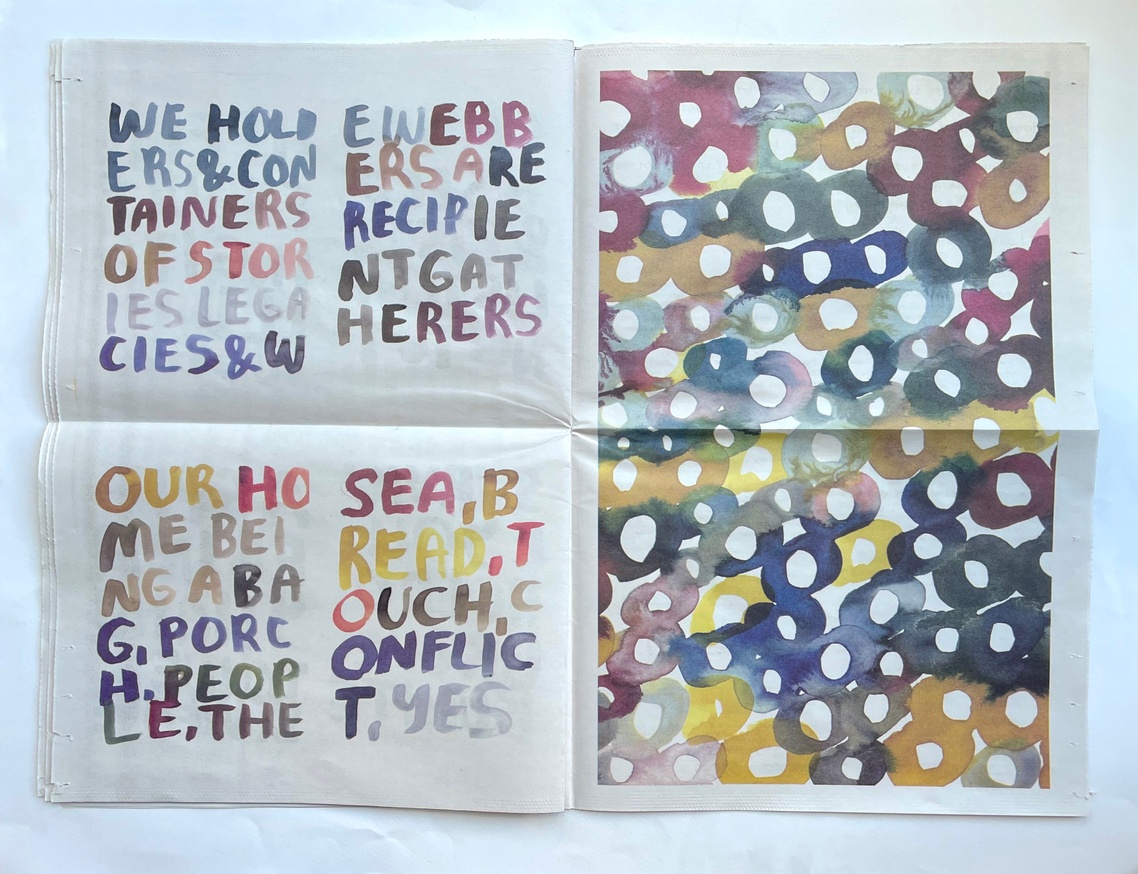 WE HOLD
ERS&CON
TAINERS
OF STOR
IES LEGA
CIES&W
E WEBB
ERS ARE
RECIPIE
NTGAT
HERERS
OUR HO
ME BEI
NG A BA
G, PORC
H, PEOP
LE, THE
SEA, B
READ, T
OUCH, C
ONFLIC
T, YES